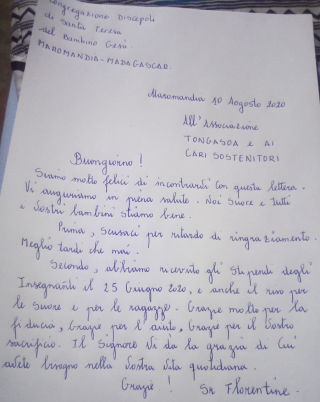 Congregazione Discepoli
di Santa Teresa
del Bambino Gesù.
MAROMANDIA-MADAGASCAR.
Maromandia 10 Agosto 2020
All'Associazione
TONGASOA e AI
CARI SOSTENITORI
Buongiorno !
Siamo molto felici di incontrarti con questa lettera.
Vi auguriamo in piena salute. Noi Suore e tutti
i Vostri bambini stiamo bene.
Prima, Scusaci per ritardo di ringraziamento.
Meglio tardi che mai.
Secondo, abbiamo ricevuto gli Stipendi degli
Insegnanti il 25 Giugno 2020, e anche il riso per
le Suore e per le ragazze. Grazie molto per la
fiducia, Grazie per l'aiuto, Grazie per il Vostro
sacrificio. Il Signore Vi da la grazia di Cui
avete bisogno nella Vostra Vita quotidiana.
Grazie ! Sr Florentine.